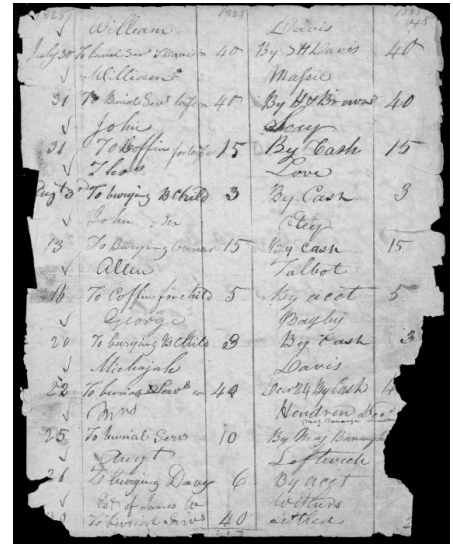 1828 1828
William Davis
July 30 To burial Servs 40 By J H Davis 40
William Massie
31 To Burial Servs wife 40 By H Brown 40
John Seay
31 To Coffin for wife 15 By Cash 15
Thos Love
Augt 3d To burying B Child 3 By Cash 3
John
13 To Burying 15 By Cash 15
Allen Talbot
16 To Coffin for child 5 By acct 5
George Bagby
20 To burying B Child 3 By Cash 3
Michajah Davis
22 To burial Servs 40 Decr 24 By Cash 4
Mrs Hendren Decd
25 To burial Servs 10 By Maj
Augt Leftwich
26 To burying Davy 6 By acct
Est of James W Withers
To burial Servs 40 settled